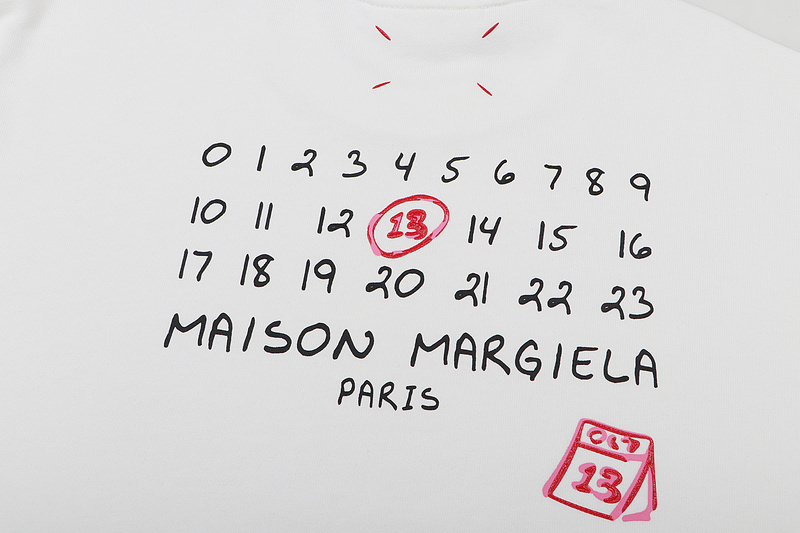 0 1 2 3 4 5 6 7 8 9
10 11 12 13 14 15 16
17 18 19 20 21 22 23
MAISON MARGIELA
PARIS
OCT
13